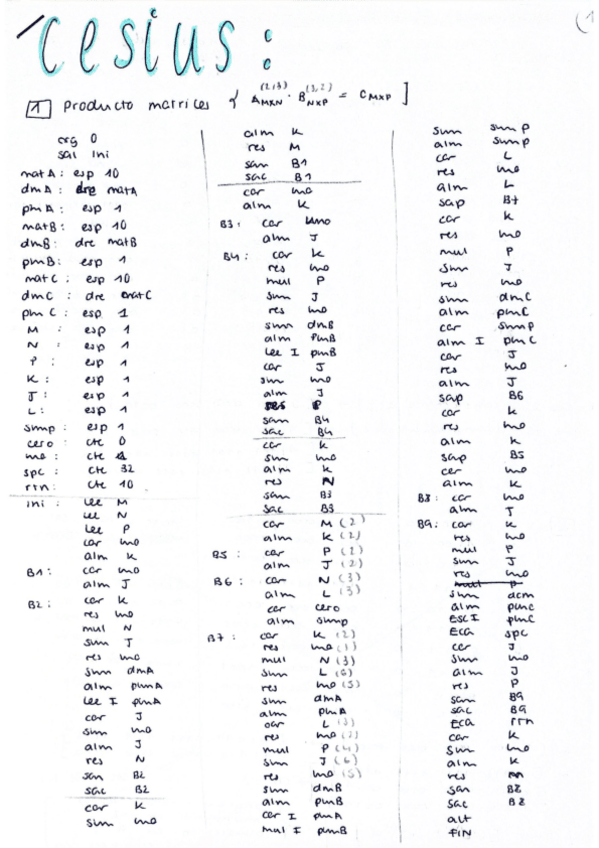 cesius:
(1
1 Producto matrices { A MXN (2,3) · B NXP (3,2) = C MXP ]
org 0
sal ini
matA: esp 10
dmA: dre matA
pmA: esp 1
matB: esp 10
dmB: dre matB
pmB: esp 1
matC: esp 10
dmC: dre matC
pmC: esp 1
M: esp 1
N: esp 1
P: esp 1
K: esp 1
J: esp 1
L: esp 1
sump: esp 1
cero: cte 0
uno: cte 1
spc: cte 32
rtn: cte 10
ini: lee M
lee N
lee P
car uno
alm K
B1: car uno
alm J
B2: car K
res uno
mul N
sum J
res uno
sum dmA
alm pmA
lee I pmA
car J
sum uno
alm J
res N
san B2
sac B2
car K
sum uno
alm K
res M
san B1
sac B1
car uno
alm K
B3: car uno
alm J
B4: car K
res uno
mul P
sum J
res uno
sum dmB
alm pmB
lee I pmB
car J
sum uno
alm J
res P
san B4
sac B4
car K
sum uno
alm K
res N
san B3
sac B3
car M (2)
alm K (2)
B5: car P (2)
alm J (2)
B6: car N (3)
alm L (3)
car cero
alm sump
B7: car K (2)
res uno (1)
mul N (3)
sum L (6)
res uno (5)
sum dmA
alm pmA
car L (3)
res uno (1)
mul P (4)
sum J (6)
res uno (5)
sum dmB
alm pmB
car I pmA
mul I pmB
sum sump
alm sump
car L
res uno
alm L
sap B7
car K
res uno
mul P
sum J
res uno
sum dmC
alm pmC
car sump
alm I pmC
car J
res uno
alm J
sap B6
car K
res uno
alm K
sap B5
car uno
alm K
B8: car uno
alm J
B9: car K
res uno
mul P
sum J
res uno
sum dcm
alm pmC
ESC I pmC
ECA spc
car J
sum uno
alm J
res P
san B9
sac B9
ECA rtn
car K
sum uno
alm K
res M
san B8
sac B8
alt
FIN